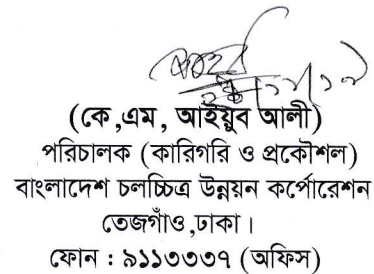 (কে,এম, আইয়ুব আলী)
পরিচালক (কারিগরি ও প্রকৌশল)
বাংলাদেশ চলচ্চিত্র উন্নয়ন কর্পোরেশন
তেজগাঁও,ঢাকা।
ফোন : ৯১১৩৩৩৭ (অফিস)